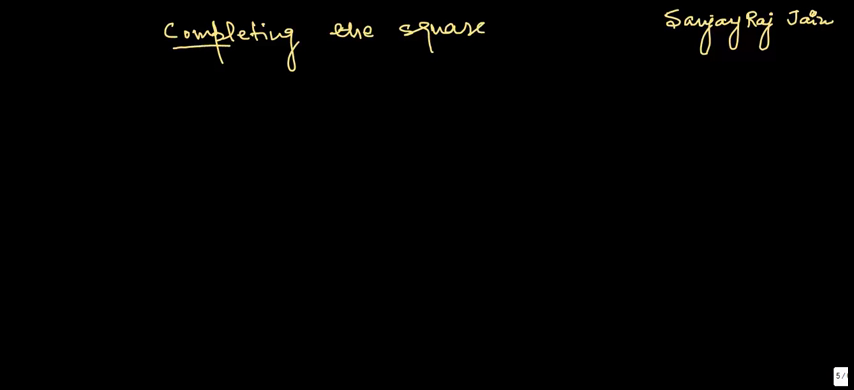 Completing the square
Sanjay Raj Jain
5/